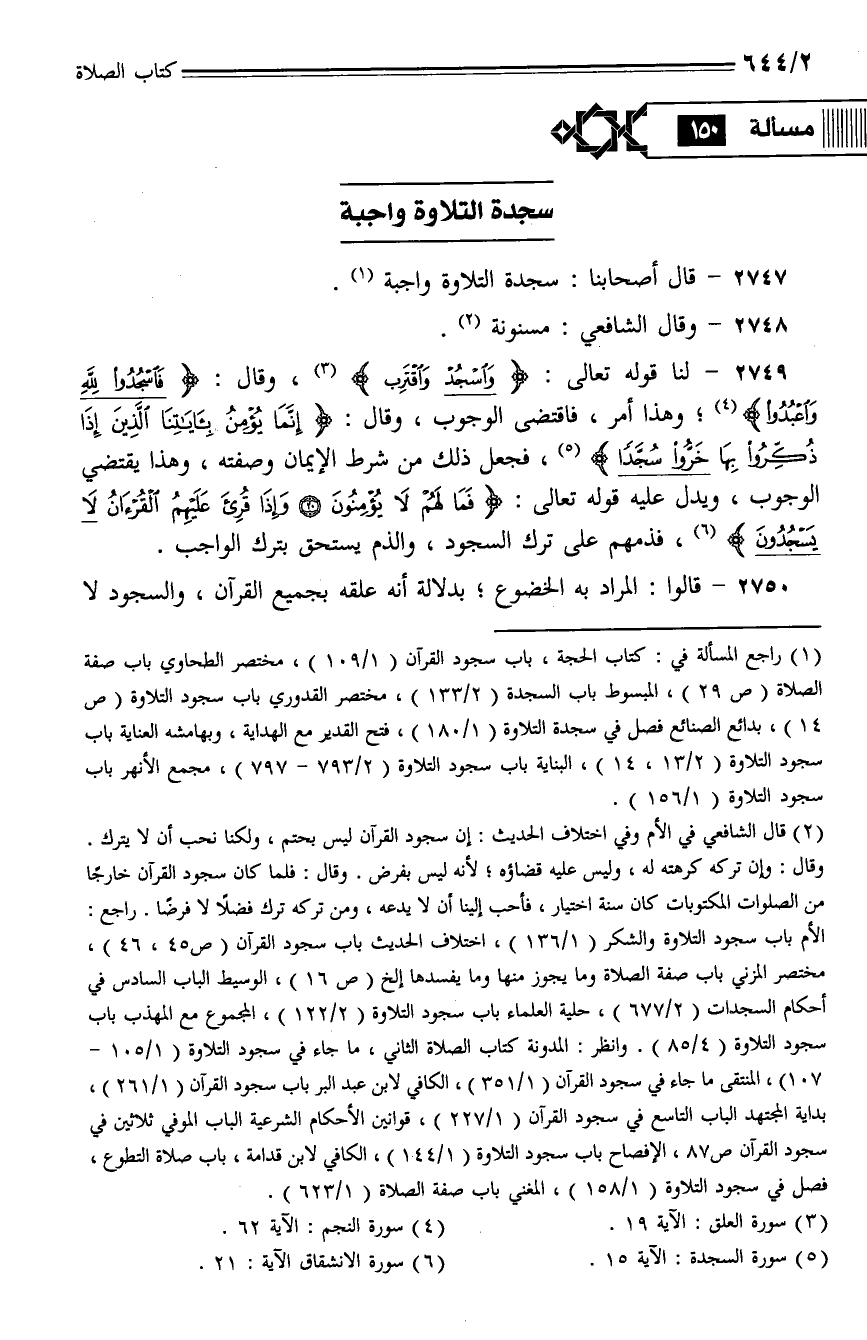 ٦٤٤/٢ كتاب الصلاة
مسألة ١٥٠
سجدة التلاوة واجبة
٢٧٤٧ - قال أصحابنا : سجدة التلاوة واجبة (١) .
٢٧٤٨ - وقال الشافعي : مسنونة (٢) .
٢٧٤٩ - لنا قوله تعالى : ﴿ وَٱسْجُدْ وَٱقْتَرِب ﴾ (٣) ، وقال : ﴿ فَٱسْجُدُوا۟ لِلَّهِ
وَٱعْبُدُوا۟ ﴾ (٤) ؛ وهذا أمر ، فاقتضى الوجوب ، وقال : ﴿ إِنَّمَا يُؤْمِنُ بِـَٔايَـٰتِنَا ٱلَّذِينَ إِذَا
ذُكِّرُوا۟ بِهَا خَرُّوا۟ سُجَّدًا ﴾ (٥) ، فجعل ذلك من شرط الإيمان وصفته ، وهذا يقتضي
الوجوب ، ويدل عليه قوله تعالى : ﴿ فَمَا لَهُمْ لَا يُؤْمِنُونَ ۝٢٠ وَإِذَا قُرِئَ عَلَيْهِمُ ٱلْقُرْءَانُ لَا
يَسْجُدُونَ ﴾ (٦) ، فذمهم على ترك السجود ، والذم يستحق بترك الواجب .
٢٧٥٠ - قالوا : المراد به الخضوع ؛ بدلالة أنه علقه بجميع القرآن ، والسجود لا
(١) راجع المسألة في : كتاب الحجة ، باب سجود القرآن ( ١٠٩/١ ) ، مختصر الطحاوي باب صفة
الصلاة ( ص ٢٩ ) ، المبسوط باب السجدة ( ١٣٣/٢ ) ، مختصر القدوري باب سجود التلاوة ( ص
١٤ ) ، بدائع الصنائع فصل في سجدة التلاوة ( ١٨٠/١ ) ، فتح القدير مع الهداية ، وبهامشه العناية باب
سجود التلاوة ( ١٣/٢ ، ١٤ ) ، البناية باب سجود التلاوة ( ٧٩٣/٢ - ٧٩٧ ) ، مجمع الأنهر باب
سجود التلاوة ( ١٥٦/١ ) .
(٢) قال الشافعي في الأم وفي اختلاف الحديث : إن سجود القرآن ليس بحتم ، ولكنا نحب أن لا يترك .
وقال : وإن تركه كرهته له ، وليس عليه قضاؤه ؛ لأنه ليس بفرض . وقال : فلما كان سجود القرآن خارجًا
من الصلوات المكتوبات كان سنة اختيار ، فأحب إلينا أن لا يدعه ، ومن تركه ترك فضلًا لا فرضًا . راجع :
الأم باب سجود التلاوة والشكر ( ١٣٦/١ ) ، اختلاف الحديث باب سجود القرآن ( ص٤٥ ، ٤٦ ) ،
مختصر المزني باب صفة الصلاة وما يجوز منها وما يفسدها إلخ ( ص ١٦ ) ، الوسيط الباب السادس في
أحكام السجدات ( ٦٧٧/٢ ) ، حلية العلماء باب سجود التلاوة ( ١٢٢/٢ ) ، المجموع مع المهذب باب
سجود التلاوة ( ٨٥/٤ ) . وانظر : المدونة كتاب الصلاة الثاني ، ما جاء في سجود التلاوة ( ١٠٥/١ -
١٠٧) ، المنتقى ما جاء في سجود القرآن ( ٣٥١/١ ) ، الكافي لابن عبد البر باب سجود القرآن ( ٢٦١/١ ) ،
بداية المجتهد الباب التاسع في سجود القرآن ( ٢٢٧/١ ) ، قوانين الأحكام الشرعية الباب الموفي ثلاثين في
سجود القرآن ص٨٧ ، الإفصاح باب سجود التلاوة ( ١٤٤/١ ) ، الكافي لابن قدامة ، باب صلاة التطوع ،
فصل في سجود التلاوة ( ١٥٨/١ ) ، المغني باب صفة الصلاة ( ٦٢٣/١ ) .
(٣) سورة العلق : الآية ١٩ . (٤) سورة النجم : الآية ٦٢ .
(٥) سورة السجدة : الآية ١٥ . (٦) سورة الانشقاق الآية : ٢١ .